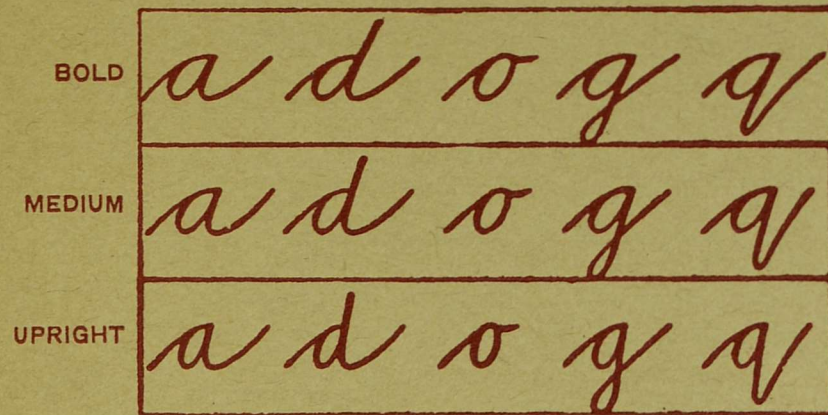 BOLD a d o g q
MEDIUM a d o g q
UPRIGHT a d o g q